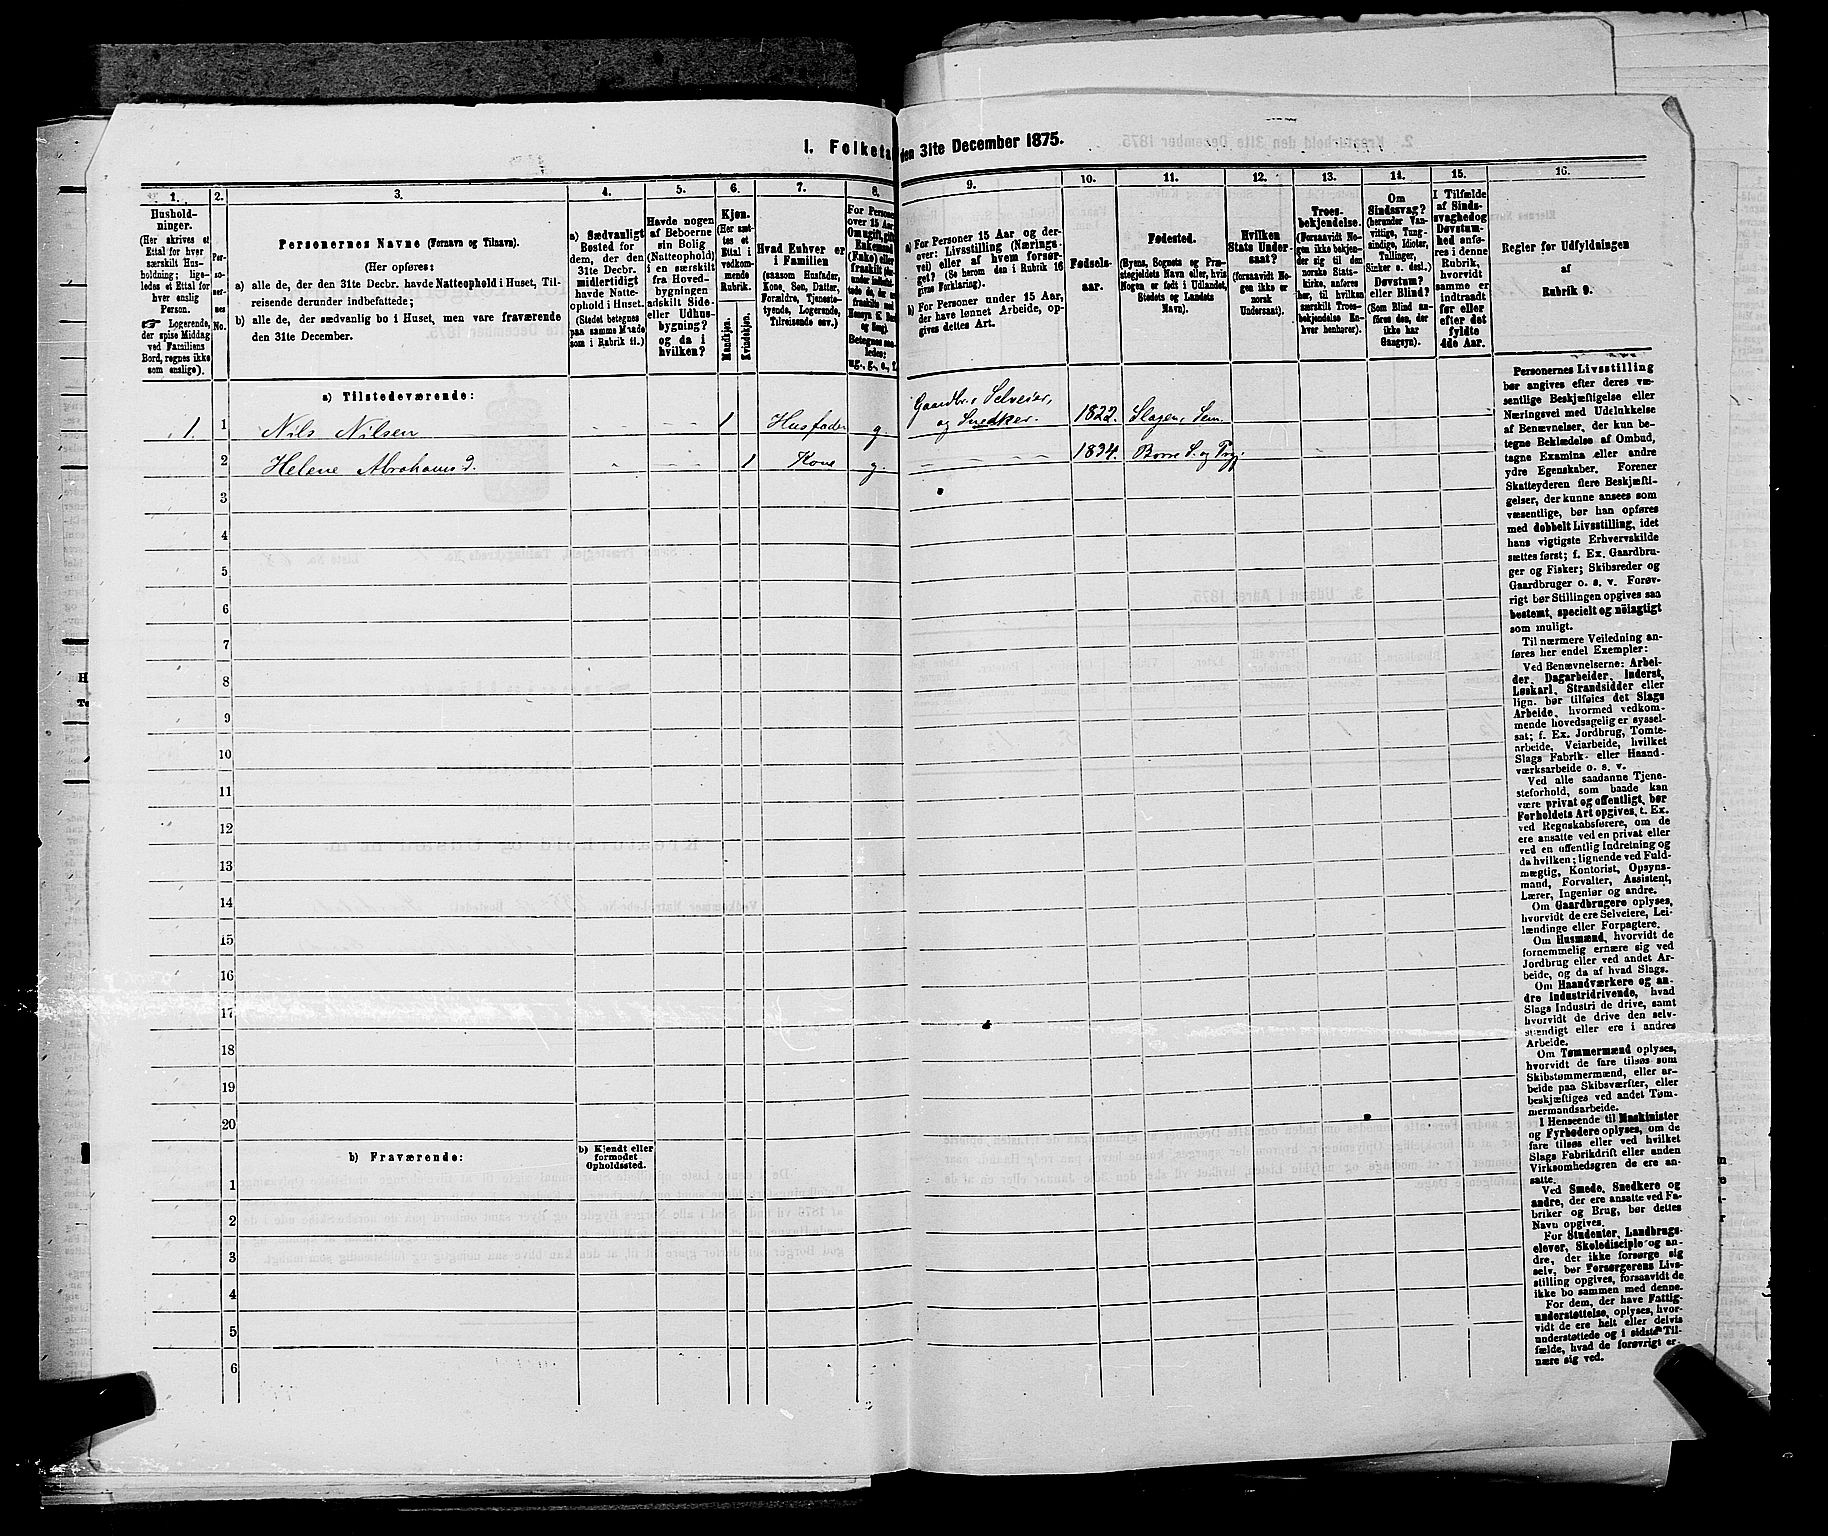 1. Folketa
den 31te December 1875.
1.
2.
3.
4.
5.
6.
7.
8.
9.
10.
11.
12.
13.
14.
15.
16.
Hushold-
ninger.
(Her skrives et
Ettal for hver
særskilt Hus-
holdning; lige-
ledes et Ettal for
hver enslig
Person.
Logerende,
der spise Middag
ved Familiens
Bord, regnes ikke
som enslige).
Per-
so-
ner-
nes
No.
Personernes Navne (Fornavn og Tilnavn).
(Her opføres:
a) alle de, der den 31te Decbr. havde Natteophold i Huset, Til-
reisende derunder indbefattede;
b) alle de, der sædvanlig bo i Huset, men vare fraværende
den 31te December.
a) Sædvanligt
Bosted for
dem, der den
31te Decbr.
midlertidigt
havde Natte-
ophold i Huset.
(Stedet betegnes
paa samme Maade
som i Rubrik 11.)
Havde nogen
af Beboerne
sin Bolig
(Natteophold)
i en særskilt
fra Hoved-
bygningen
adskilt Side-
eller Udhus-
bygning?
og da i
hvilken?
Kjøn.
(Her sæt-
tes et
Ettal i
vedkom-
mende
Rubrik.
Mandkjøn.
Kvindekjøn.
Hvad Enhver er
i Familien
(saasom Husfader,
Kone, Søn, Datter,
Forældre, Tjeneste-
tyende, Logerende,
Tilreisende osv.)
For Personer
over 15 Aar,
Om ugift, gift
Enkemand
(Enke) eller
fraskilt
Betegnes saa-
ledes:
ug., g., e., f.
a) For Personer 15 Aar og der-
over: Livsstilling (Nærings-
vei) eller af hvem forsør-
get? (Se herom den i Rubrik 16
givne Forklaring).
b) For Personer under 15 Aar,
der have lønnet Arbeide, op-
gives dettes Art.
Fødsels-
aar.
Fødested.
(Byens, Sognets og Præ-
stegjeldets Navn eller, hvis
Nogen er født i Udlandet,
Stedets og Landets
Navn).
Hvilken
Stats Under-
saat?
(forsaavidt No-
gen ikke er
norsk
Undersaat).
Troes-
bekjendelse.
(Forsaavidt No-
gen ikke bekjen-
der sig til den
norske Stats-
kirke, anføres
her, til hvilken
særskilt Troes-
bekjendelse En-
hver henhører).
Om
Sindssvag?
(herunder Van-
vittige, Tung-
sindige, Idioter,
Tullinger,
Sinker o. desl.)
Døvstum?
eller Blind?
(Som Blind an-
føres den, der
ikke har
Gangsyn).
I Tilfælde
af Sinds-
svaghed og
Døvstum-
hed anfø-
res i denne
Rubrik,
hvorvidt
samme er
indtraadt
før eller
efter det
fyldte
4de Aar.
Regler for Udfyldningen
af
Rubrik 9.
a) Tilstedeværende:
1. 1 Nils Nilsen - - 1 Husfader g. Gaardbr., Selveier, og Snedker. 1822. Slagen, Sem.
2 Helene Abrahamsd. - - 1 Kone g. 1834. Borre S. og Prgj.
3
4
5
6
7
8
9
10
11
12
13
14
15
16
17
18
19
20
b) Fraværende:
b) Kjendt eller
formodet
Opholdssted.
1
2
3
4
5
6
Personernes Livsstilling
bør angives efter deres væ-
sentlige Beskjæftigelse eller
Næringsvei med Udelukkelse
af Benævnelser, der kun be-
tegne Beklædelse af Ombud,
tagne Examina eller andre
ydre Egenskaber. Forener
Skatteyderen flere Beskjæfti-
gelser, der kunne ansees som
væsentlige, bør han opføres
med dobbelt Livsstilling, idet
hans vigtigste Erhvervskilde
sættes først; f. Ex. Gaardbru-
ger og Fisker; Skibsreder og
Gaardbruger o. s. v. Forøv-
rigt bør Stillingen opgives saa
bestemt, specielt og nöiagtigt
som muligt.
Til nærmere Veiledning an-
føres her endel Exempler:
Ved Benævnelserne: Arbei-
der, Dagarbeider, Inderst,
Løskarl, Strandsidder eller
lign. bør tilføies det Slags
Arbeide, hvormed vedkom-
mende hovedsagelig er syssel-
sat; f. Ex. Jordbrug, Tomte-
arbeide, Veiarbeide, hvilket
Slags Fabrik- eller Haand-
værksarbeide o. s. v.
Ved alle saadanne Tjene-
steforhold, som baade kan
være privat og offentligt, bør
Forholdets Art opgives, t. Ex.
ved Regnskabsførere, om de
ere ansatte ved en privat eller
ved en offentlig Indretning og
da hvilken; lignende ved Fuld-
mægtig, Kontorist, Opsyns-
mand, Forvalter, Assistent,
Lærer, Ingeniør og andre.
Om Gaardbrugere oplyses,
hvorvidt de ere Selveiere, Lei-
lændinge eller Forpagtere.
Om Husmænd, hvorvidt de
fornemmelig ernære sig ved
Jordbrug eller ved andet Ar-
beide, og da af hvad Slags.
Om Haandværkere og an-
dre Industridrivende, hvad
Slags Industri de drive, samt
hvorvidt de drive den selv-
stændigt eller ere i andres
Arbeide.
Om Tømmermænd oplyses,
hvorvidt de fare tilsøs som
Skibstømmermænd, eller ar-
beide paa Skibsværfter, eller
beskjæftiges ved andet Tøm-
mermandsarbeide.
I Henseende til Maskinister
og Fyrbødere oplyses, om de
fare tilsøs eller ved hvilket
Slags Fabrikdrift eller anden
Virksomhedsgren de ere an-
satte.
Ved Smede, Snedkere og
andre, der ere ansatte ved Fa-
briker og Brug, bør dettes
Navn opgives.
For Studenter, Landbrugs-
elever, Skoledisciple og an-
dre, der ikke forsørge sig
selv, bør Forsørgerens Livs-
stilling opgives, forsaavidt de
ikke bo sammen med denne.
For dem, der have Fattig-
understøttelse, oplyses, hvor-
vidt de ere helt eller delvis
understøttede og i sidste Til-
fælde, hvad de forøvrigt er-
nære sig ved.